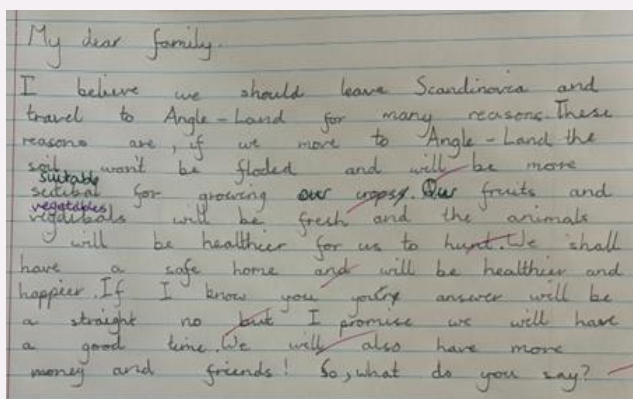 My dear family.
I believe we should leave Scandinovia and
travel to Angle-Land for many reasons. These
reasons are, if we more to Angle-Land the
soil won't be floded and will be more
suitably
sutibal for growing our crops. Our fruits and
vegatables
vegdubals will be fresh and the animals
will be healthier for us to hunt. We shall
have a safe home and will be healthier and
happier. If I know you your answer will be
a straight no but I promise we will have
a good time. We will also have more
money and friends! So, what do you say?